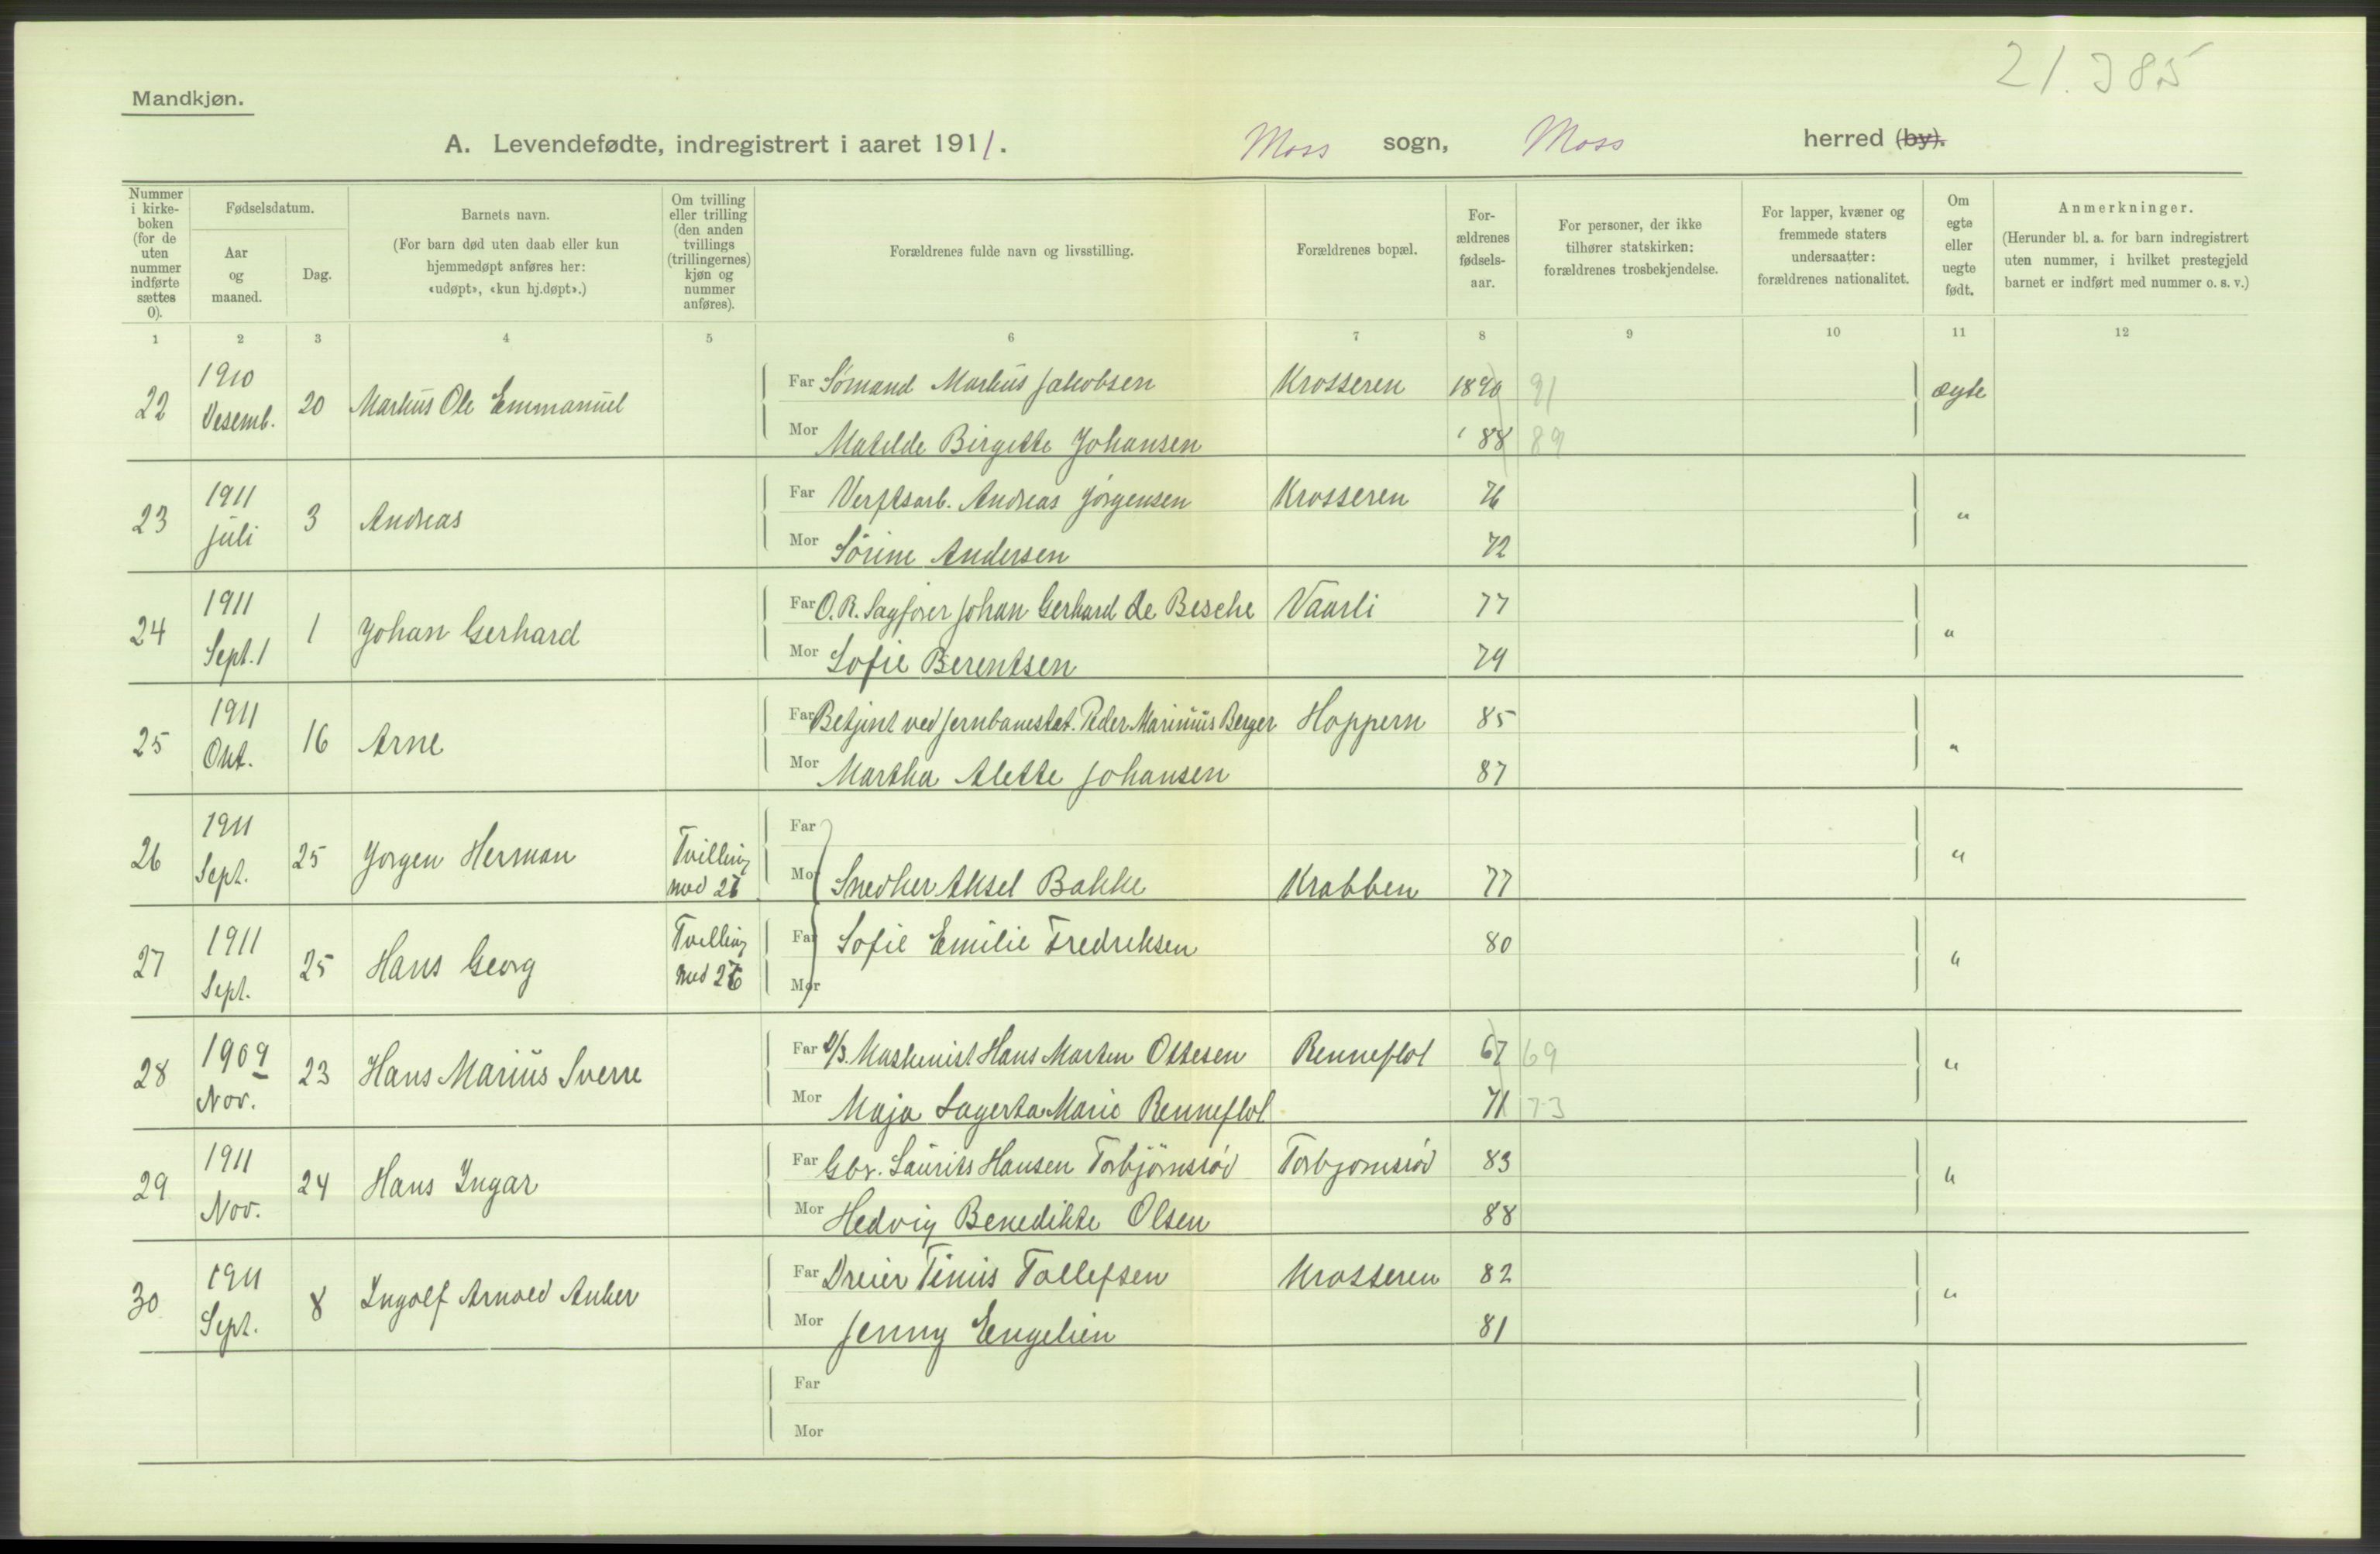 21.385
Mandkjøn.
A. Levendefødte, indregistrert i aaret 1911. Moss sogn, Moss herred (by).
Nummer i kirkeboken (for de uten nummer indførte sættes 0).
Fødselsdatum.
Aar og maaned.
Dag.
Barnets navn.
(For barn død uten daab eller kun hjemmedøpt anføres her: «udøpt», «kun hj.døpt».)
Om tvilling eller trilling (den anden tvillings (trillingernes) kjøn og nummer anføres).
Forældrenes fulde navn og livsstilling.
Forældrenes bopæl.
For-
ældrenes
fødsels-
aar.
For personer, der ikke tilhører statskirken: forældrenes trosbekjendelse.
For lapper, kvæner og fremmede staters undersaatter: forældrenes nationalitet.
Om egte eller uegte født.
Anmerkninger.
(Herunder bl. a. for barn indregistrert uten nummer, i hvilket prestegjeld barnet er indført med nummer o. s. v.)
1 2 3 4 5 6 7 8 9 10 11 12
22 1910 Desemb. 20 Markus Ole Emmanuel Far Sømand Markus Jakobsen Krosseren 1890 91 ægte
Mor Matilde Birgitte Johansen ' 88 89
23 1911 Juli 3 Andreas Far Verftsarb. Andreas Jørgensen Krosseren 76 "
Mor Sørine Andersen 72
24 1911 Sept. 1 1 Johan Gerhard Far O.R. Sagfører Johan Gerhard de Besche Vaarli 77 "
Mor Sofie Berentsen 79
25 1911 Okt. 16 Arne Far Betjent ved Jernbanestat. Peder Marinius Berger Hoppern 85 "
Mor Martha Alette Johansen 87
26 1911 Sept. 25 Jørgen Herman Tvilling med 27 Far "
Mor Snedker Aksel Bakke Krabben 77
27 1911 Sept. 25 Hans Georg Tvilling med 26 Far Sofie Emilie Fredriksen 80 "
Mor
28 1909 Nov. 23 Hans Marius Sverre Far Maskinist Hans Marten Ottesen Renneflot 67 69 "
Mor Maja Lagerta Marie Renneflot 71 73
29 1911 Nov. 24 Hans Ingar Far Gbr. Laurits Hansen Torbjørnsrød Torbjornsrød 83 "
Mor Hedvig Benedikte Olsen 88
30 1911 Sept. 8 Ingolf Arnold Anker Far Dreier Tinius Tollefsen Krosseren 82 "
Mor Jenny Engelien 81
Far
Mor